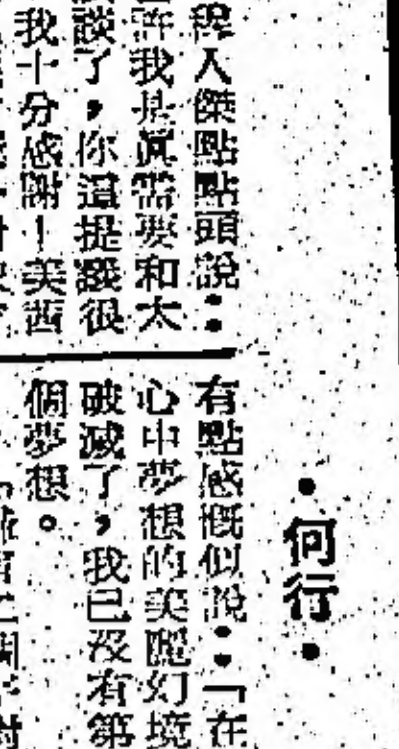 程人傑點點頭說：
許我是真需要和太
談了，你這提議很
我十分感謝！美西
•何行•
有點感慨似說：「在
心中夢想的美麗幻境
破滅了，我已没有第
個夢想。